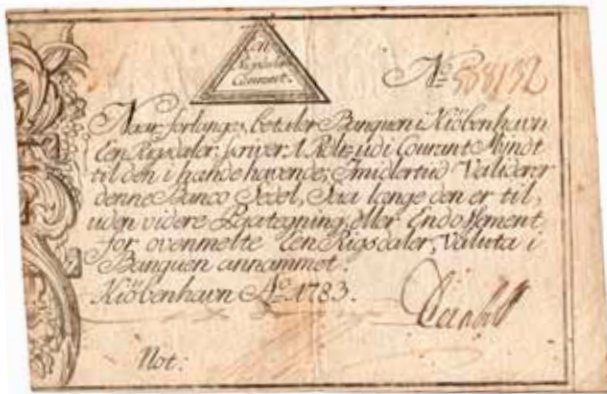 Een
Rigsdaler
Courant.
No 588152
Naar forlanges, betaler Banquen i Kiöbenhavn
Een Rigsdaler, skriver 1 Rdlr. udi Courant Myndt
til den i hænde havende; Imidlertiid Validerer
denne Banco Sedel, Saa længe den er til,
uden videre Egategning eller Endossement
for ovenmelte Een Rigsdaler, Valuta i
Banquen annammet.
Kiöbenhavn Ao. 1783.
Not: